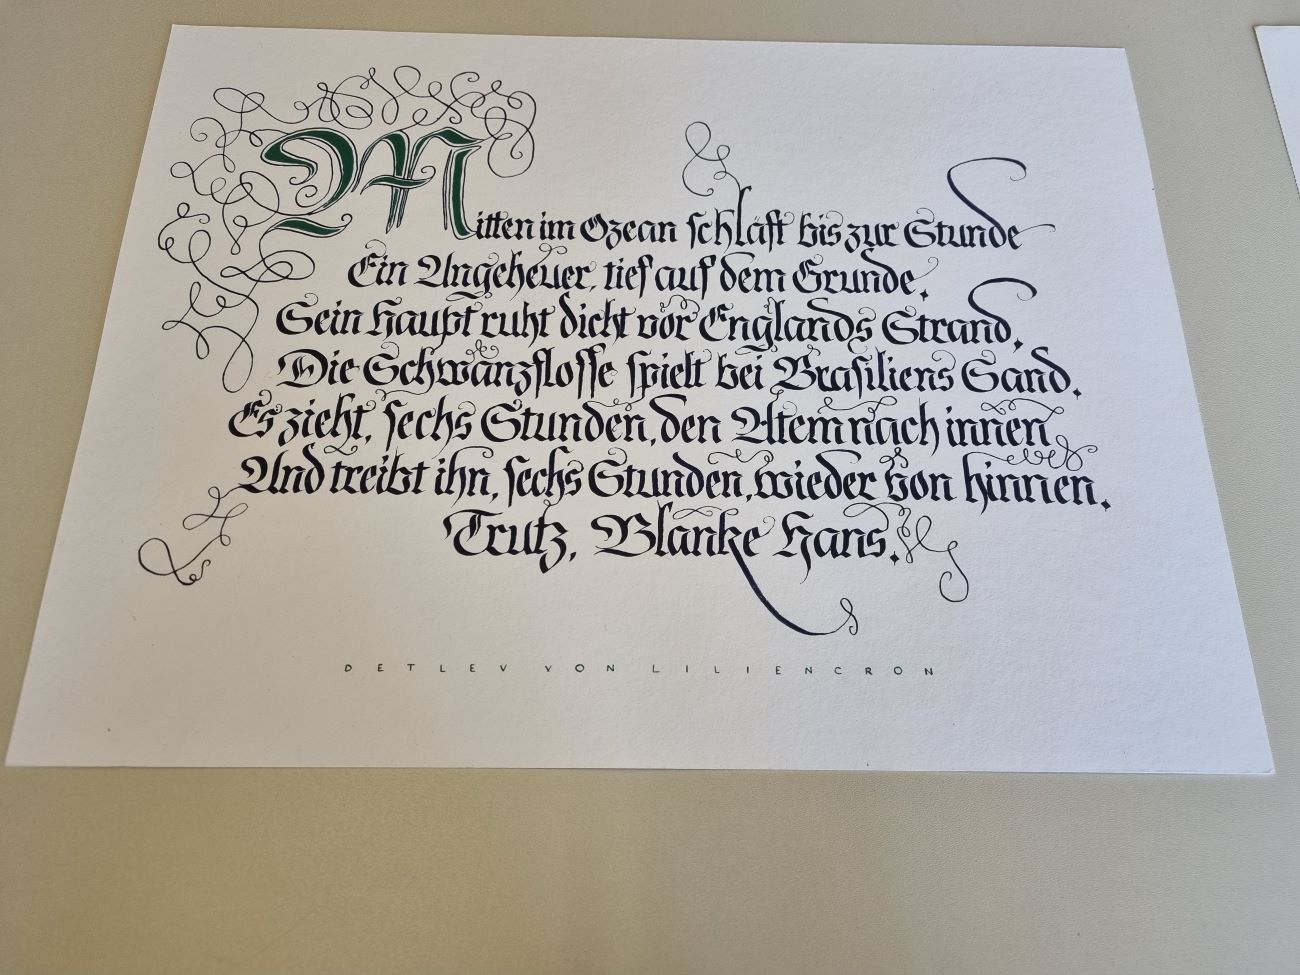 Mitten im Ozean schläft bis zur Stunde
Ein Ungeheuer, tief auf dem Grunde,
Sein Haupt ruht dicht vor Englands Strand,
Die Schwanzflosse spielt bei Brasiliens Sand.
Es zieht, sechs Stunden, den Atem nach innen
Und treibt ihn, sechs Stunden, wieder von hinnen.
Trutz, Blanke Hans.
DETLEV VON LILIENCRON